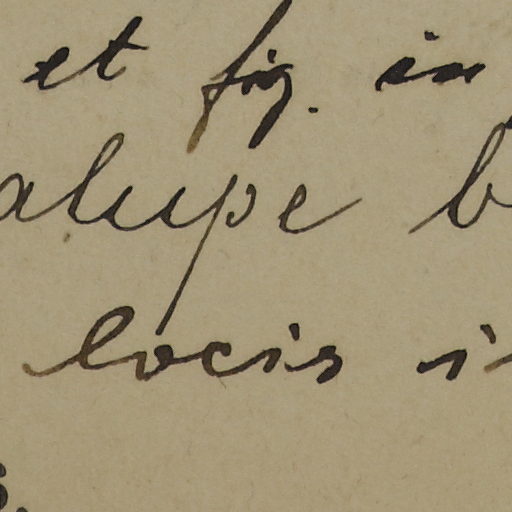 et fig. in
alupe b
locis i
s.